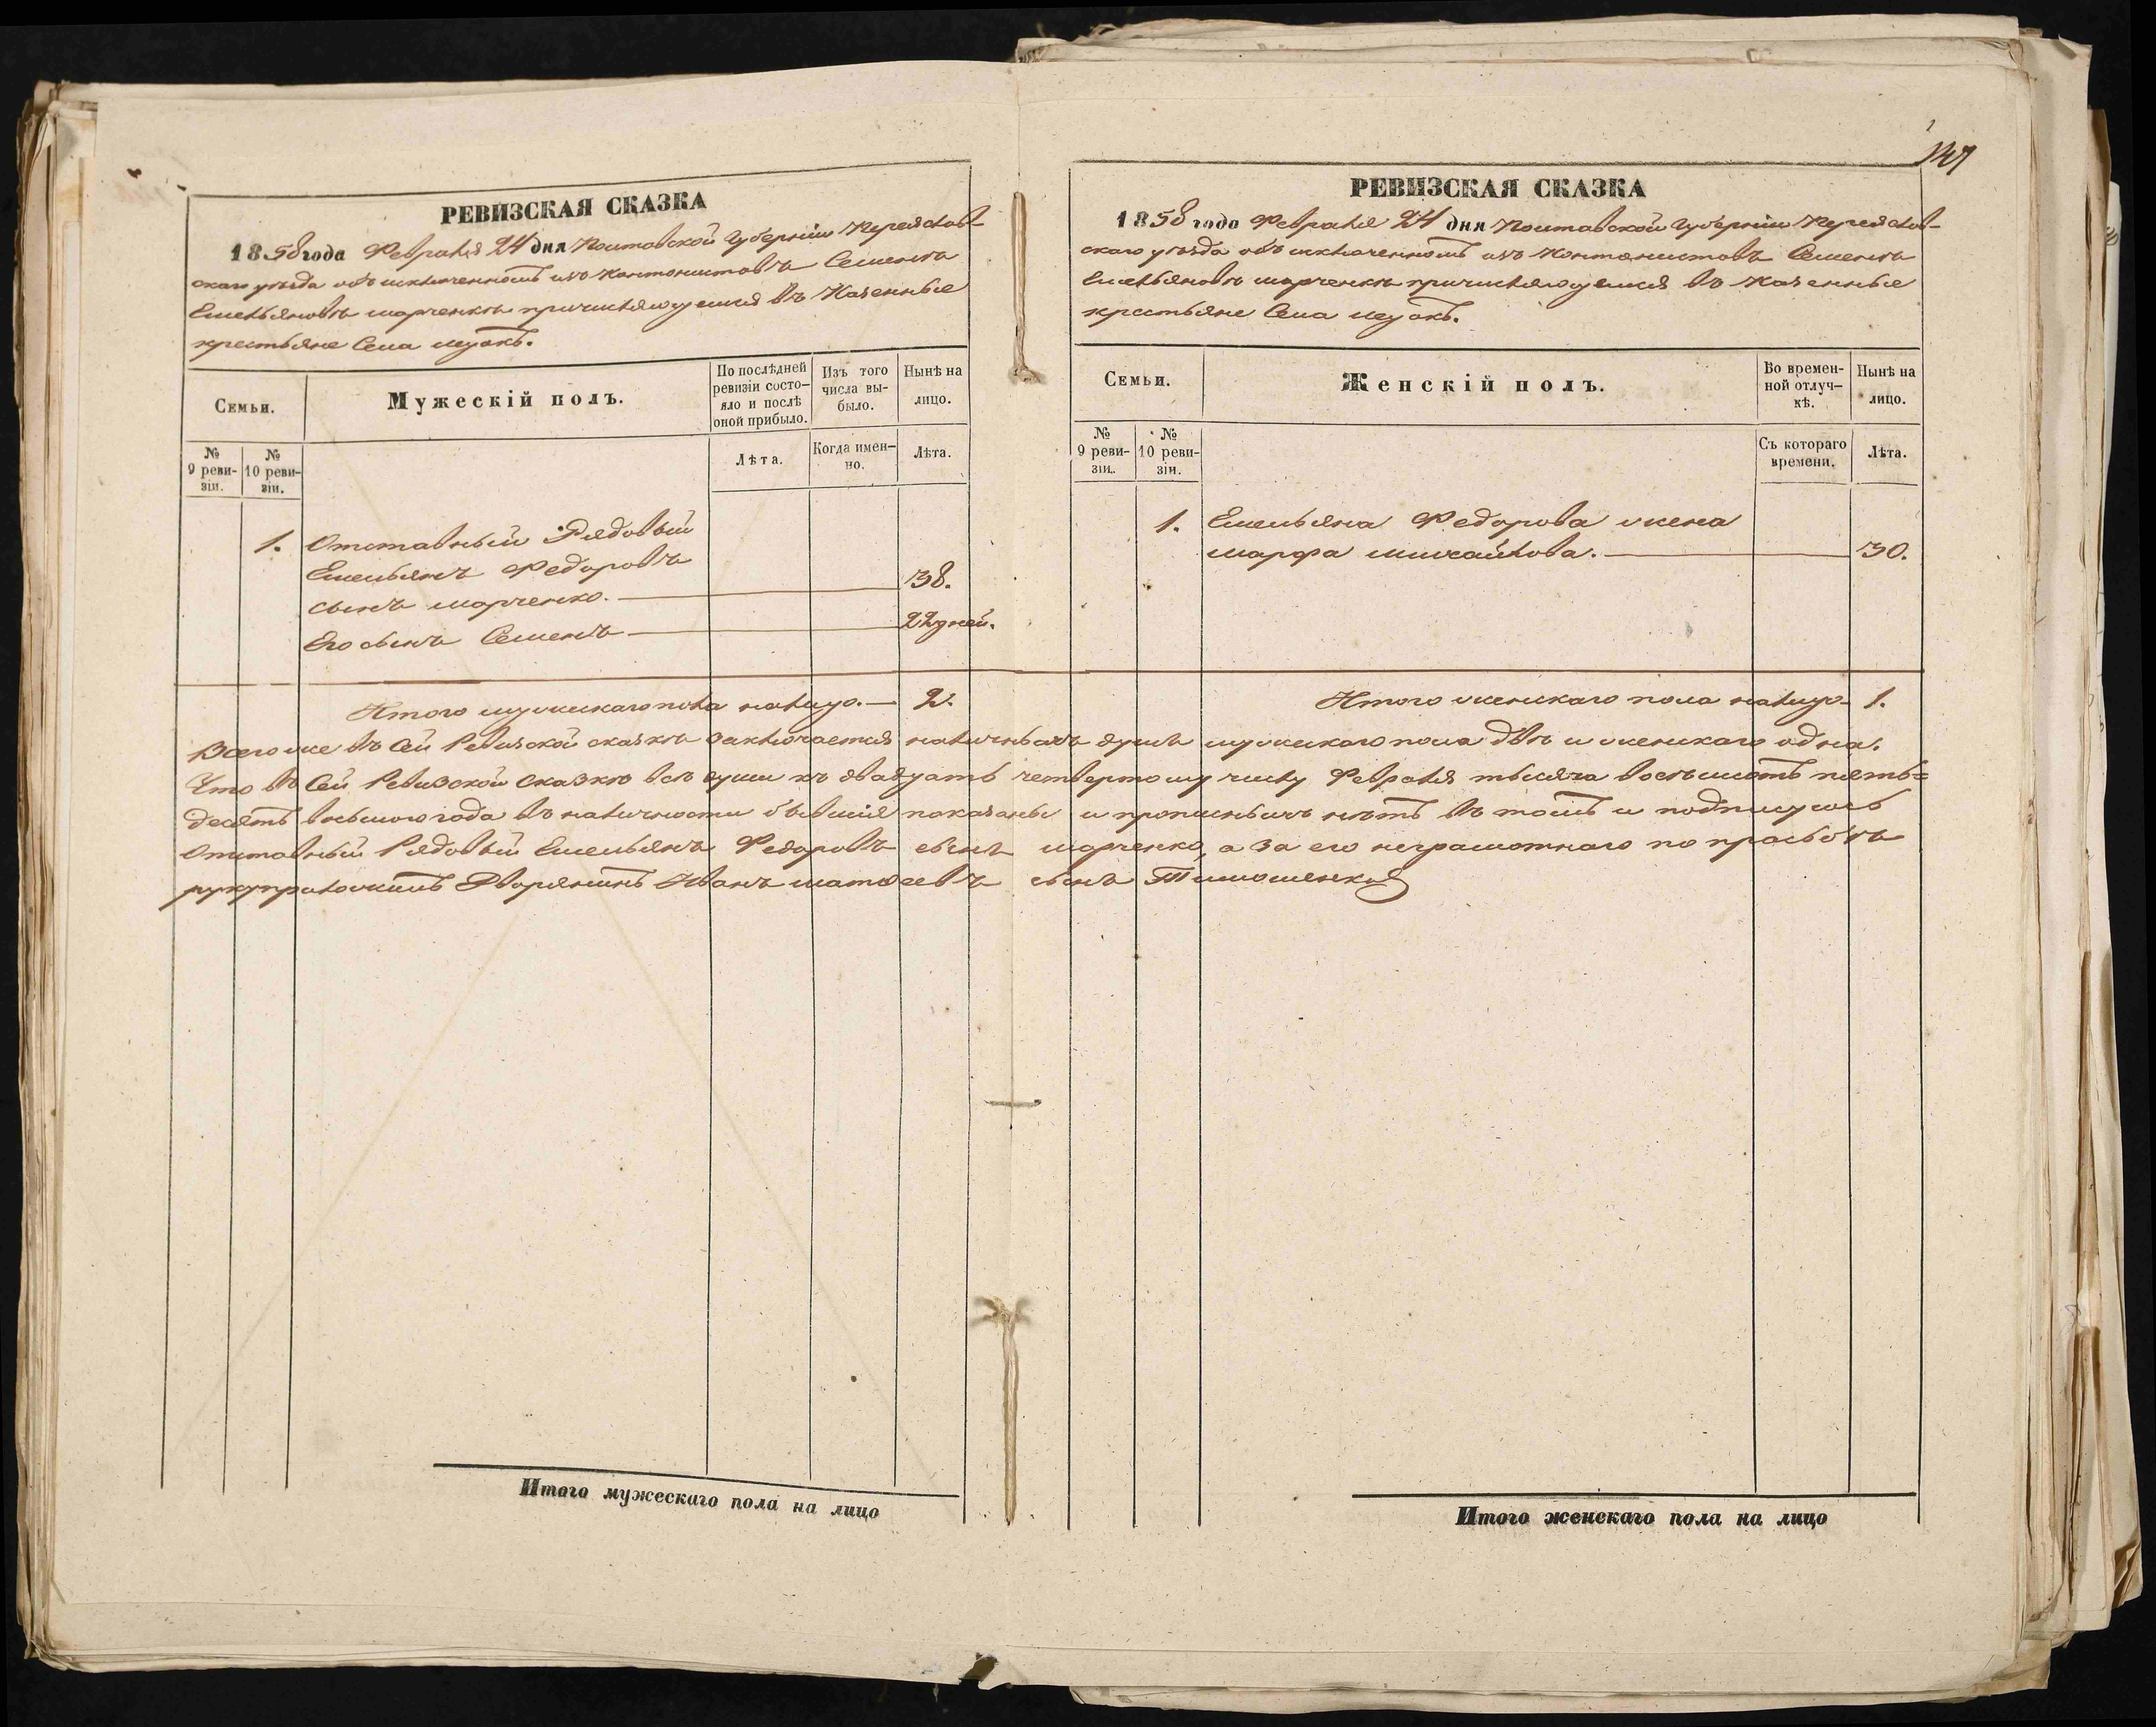 147
РЕВИЗСКАЯ СКАЗКА
1858 года Февраля 24 дня Полтавской Губерніи Переяслав-
скаго уѣзда объ исключенномъ изъ Кантонистовъ Семенѣ
Емельяновѣ Марченкѣ причисляющемся въ Казенные
крестьяне Села
Семьи.
Мужескій полъ.
По послѣдней ревизіи состояло и послѣ оной прибыло.
Изъ того числа выбыло.
Нынѣ на лицо.
№ 9 ревизіи.
№ 10 ревизіи.
Лѣта.
Когда именно.
Лѣта.
1. Отставный Рядовый
Емельянъ Федоровъ
сынъ Марченко. 38.
Его сынъ Семенъ 22 дней.
Итого мужескаго пола налицо. — 2.
РЕВИЗСКАЯ СКАЗКА
1858 года Февраля 24 дня Полтавской Губерніи Переяслав-
скаго уѣзда объ исключенномъ изъ Кантонистовъ Семенѣ
Емельяновѣ Марченкѣ причисляющемся въ Казенные
крестьяне Села
Семьи.
Женскій полъ.
Во временной отлучкѣ.
Нынѣ на лицо.
№ 9 ревизіи.
№ 10 ревизіи.
Съ котораго времени.
Лѣта.
1. Емельяна Федорова жена
Марфа Михайлова. 30.
Итого женскаго пола налицо 1.
Всего же въ Сей Ревизской сказкѣ заключается наличныхъ душъ мужескаго пола двѣ и женскаго одна.
Что въ Сей Ревизской Сказкѣ всѣ души къ двадцать четвертому числу Февраля тысяча восемьсотъ пять=
десятъ восьмого года въ наличности бывшія показаны и прописныхъ нѣтъ въ томъ и подпишусь
Отставный Рядовый Емельянъ Федоровъ сынъ Марченко, а за его неграмотнаго по просьбѣ
Дворянинъ Иванъ Матвеевъ сынъ Тимошенко
Итого мужескаго пола на лицо
Итого женскаго пола на лицо